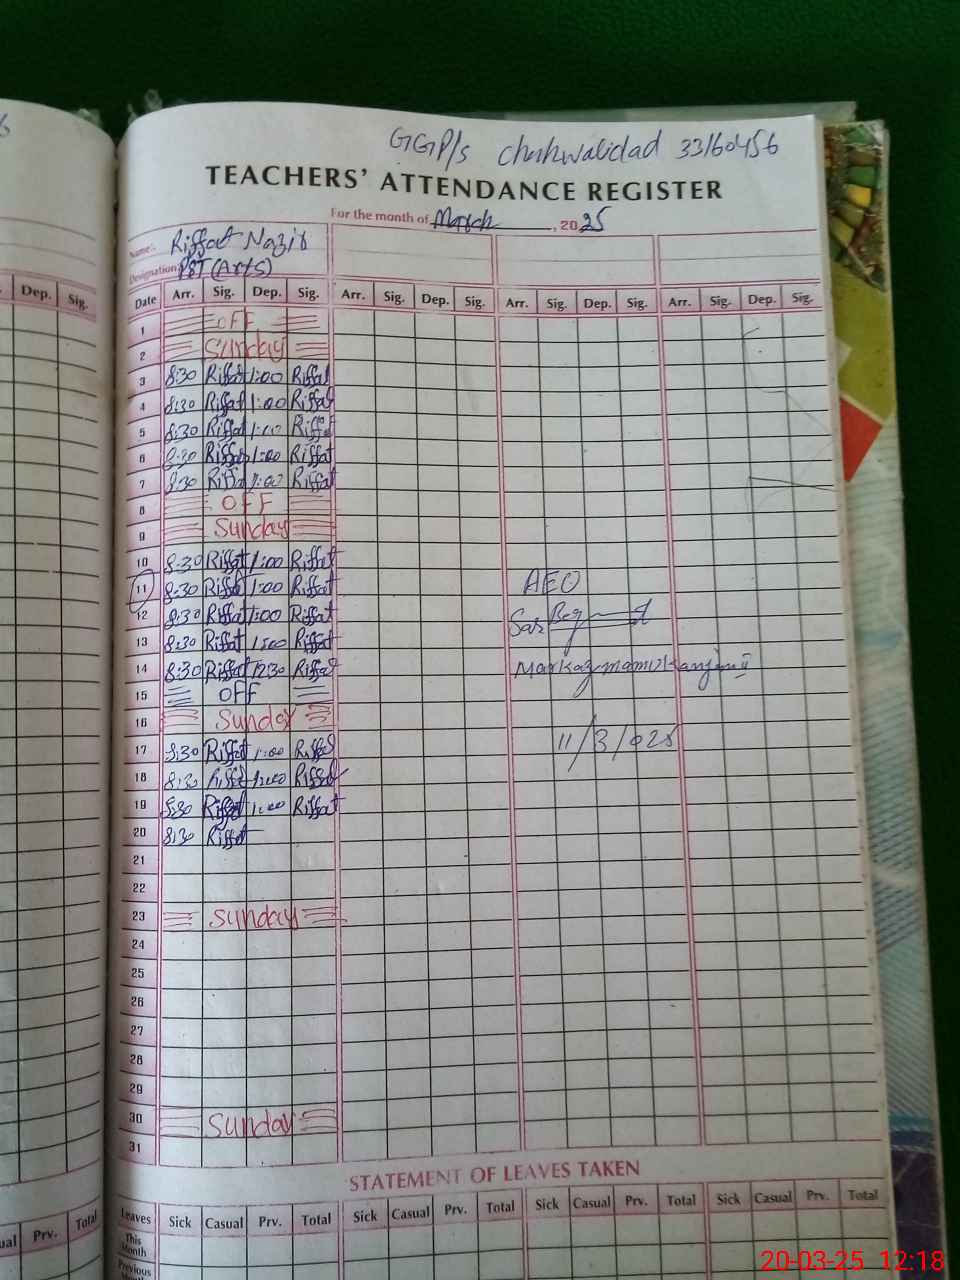 GGP/s chakwalidad 33160456
TEACHERS' ATTENDANCE REGISTER
For the month of March, 2025
Name:- Riffat Nazir
Designation: PST (Arts)
Date Arr. Sig. Dep. Sig. Arr. Sig. Dep. Sig. Arr. Sig. Dep. Sig. Arr. Sig. Dep. Sig.
Dep. Sig.
1 OFF
2 Sunday
3 8:30 Riffat 1:00 Riffat
4 8:30 Riffat 1:00 Riffat
5 8:30 Riffat 1:00 Riffat
6 8:30 Riffat 1:00 Riffat
7 8:30 Riffat 1:00 Riffat
8 OFF
9 Sunday
10 8:30 Riffat 1:00 Riffat
11 8:30 Riffat 1:00 Riffat AEO
12 8:30 Riffat 1:00 Riffat
13 8:30 Riffat 1:00 Riffat
14 8:30 Riffat 12:30 Riffat Markaz mamukanjan II
15 OFF
16 Sunday
17 8:30 Riffat 1:00 Riffat 11/3/025
18 8:30 Riffat 1:00 Riffat
19 8:30 Riffat 1:00 Riffat
20 8:30 Riffat
21
22
23 Sunday
24
25
26
27
28
29
30 Sunday
31
STATEMENT OF LEAVES TAKEN
Leaves Sick Casual Prv. Total Sick Casual Prv. Total Sick Casual Prv. Total Sick Casual Prv. Total
Prv. Total
This Month
Previous
20-03-25 12:18